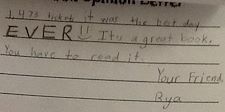 Opinion Letter
it was the best day
EVER!! It's a great book.
You have to read it.
Your Friend,
Rya